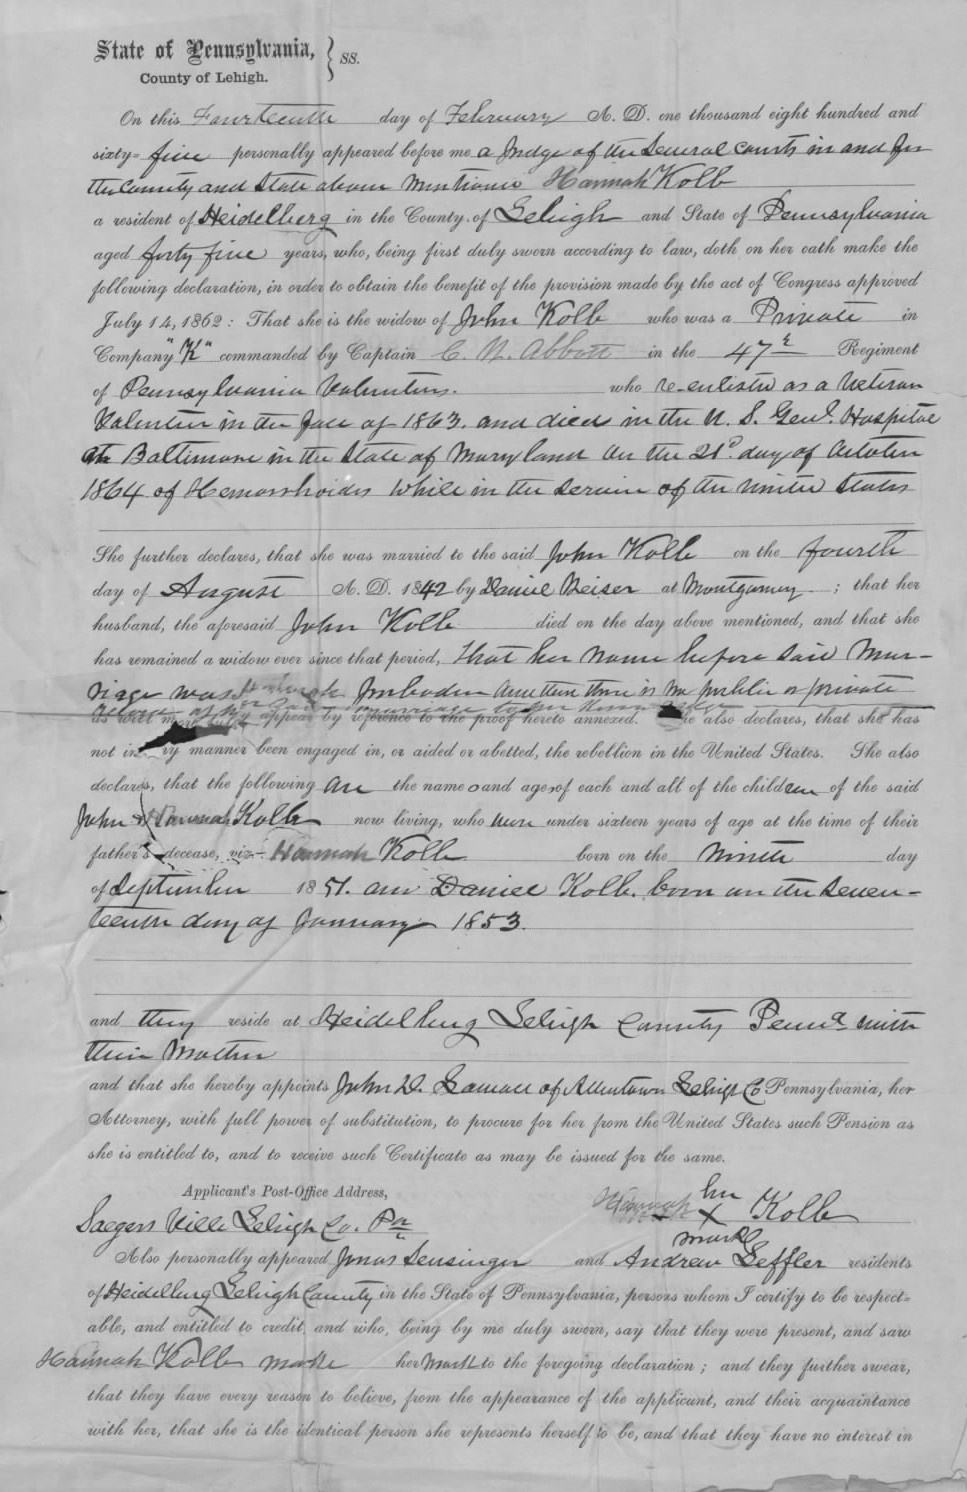 State of Pennsylvania, } ss.
County of Lehigh.
On this Fourteenth day of February A. D. one thousand eight hundred and
sixty-five personally appeared before me a Judge of the Several Courts in and for
the County and State above mentioned Hannah Kolb
a resident of Heidelberg in the County of Lehigh and State of Pennsylvania
aged forty five years, who, being first duly sworn according to law, doth on her oath make the
following declaration, in order to obtain the benefit of the provision made by the act of Congress approved
July 14, 1862: That she is the widow of John Kolb who was a Private in
Company "K" commanded by Captain C. W. Abbott in the 47th Regiment
of Pennsylvania Volunteers. who re-enlisted as a Veteran
Volunteer in the fall of 1863. and died in the U. S. Genl. Hospital
at Baltimore in the State of Maryland on the 21st day of October
1864 of Hemorrhoides while in the service of the United States
She further declares, that she was married to the said John Kolb on the fourth
day of August A. D. 1842 by Daniel Weiser at Montgomery ; that her
husband, the aforesaid John Kolb died on the day above mentioned, and that she
has remained a widow ever since that period, that her name before said Mar-
riage was Hannah and that there is no public or private
record of her said marriage to her knowledge
as will more fully appear by reference to the proof hereto annexed. She also declares, that she has
not in any manner been engaged in, or aided or abetted, the rebellion in the United States. She also
declares, that the following are the name and ages of each and all of the children of the said
John & Hannah Kolb now living, who were under sixteen years of age at the time of their
father's decease, viz— Hannah Kolb born on the Ninth day
of September 1851. and Daniel Kolb. born on the Seven-
teenth day of January 1853.
and they reside at Heidelberg Lehigh County Penna with
their Mother
and that she hereby appoints John D. of Allentown Lehigh Co Pennsylvania, her
Attorney, with full power of substitution, to procure for her from the United States such Pension as
she is entitled to, and to receive such Certificate as may be issued for the same.
Applicant's Post-Office Address,
Saegersville Lehigh Co. Pa
Hannah her X mark Kolb
Also personally appeared Jonas Sensinger and Andrew Leffler residents
of Heidelberg Lehigh County in the State of Pennsylvania, persons whom I certify to be respect-
able, and entitled to credit, and who, being by me duly sworn, say that they were present, and saw
Hannah Kolb make her mark to the foregoing declaration ; and they further swear,
that they have every reason to believe, from the appearance of the applicant, and their acquaintance
with her, that she is the identical person she represents herself to be, and that they have no interest in